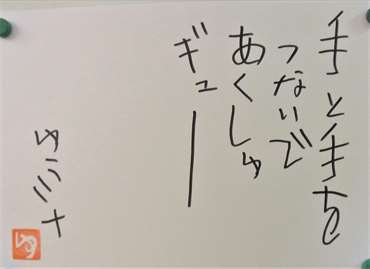 手と手を
つないで
あくしゅ
ギュー
ゆうミナ
ゆ